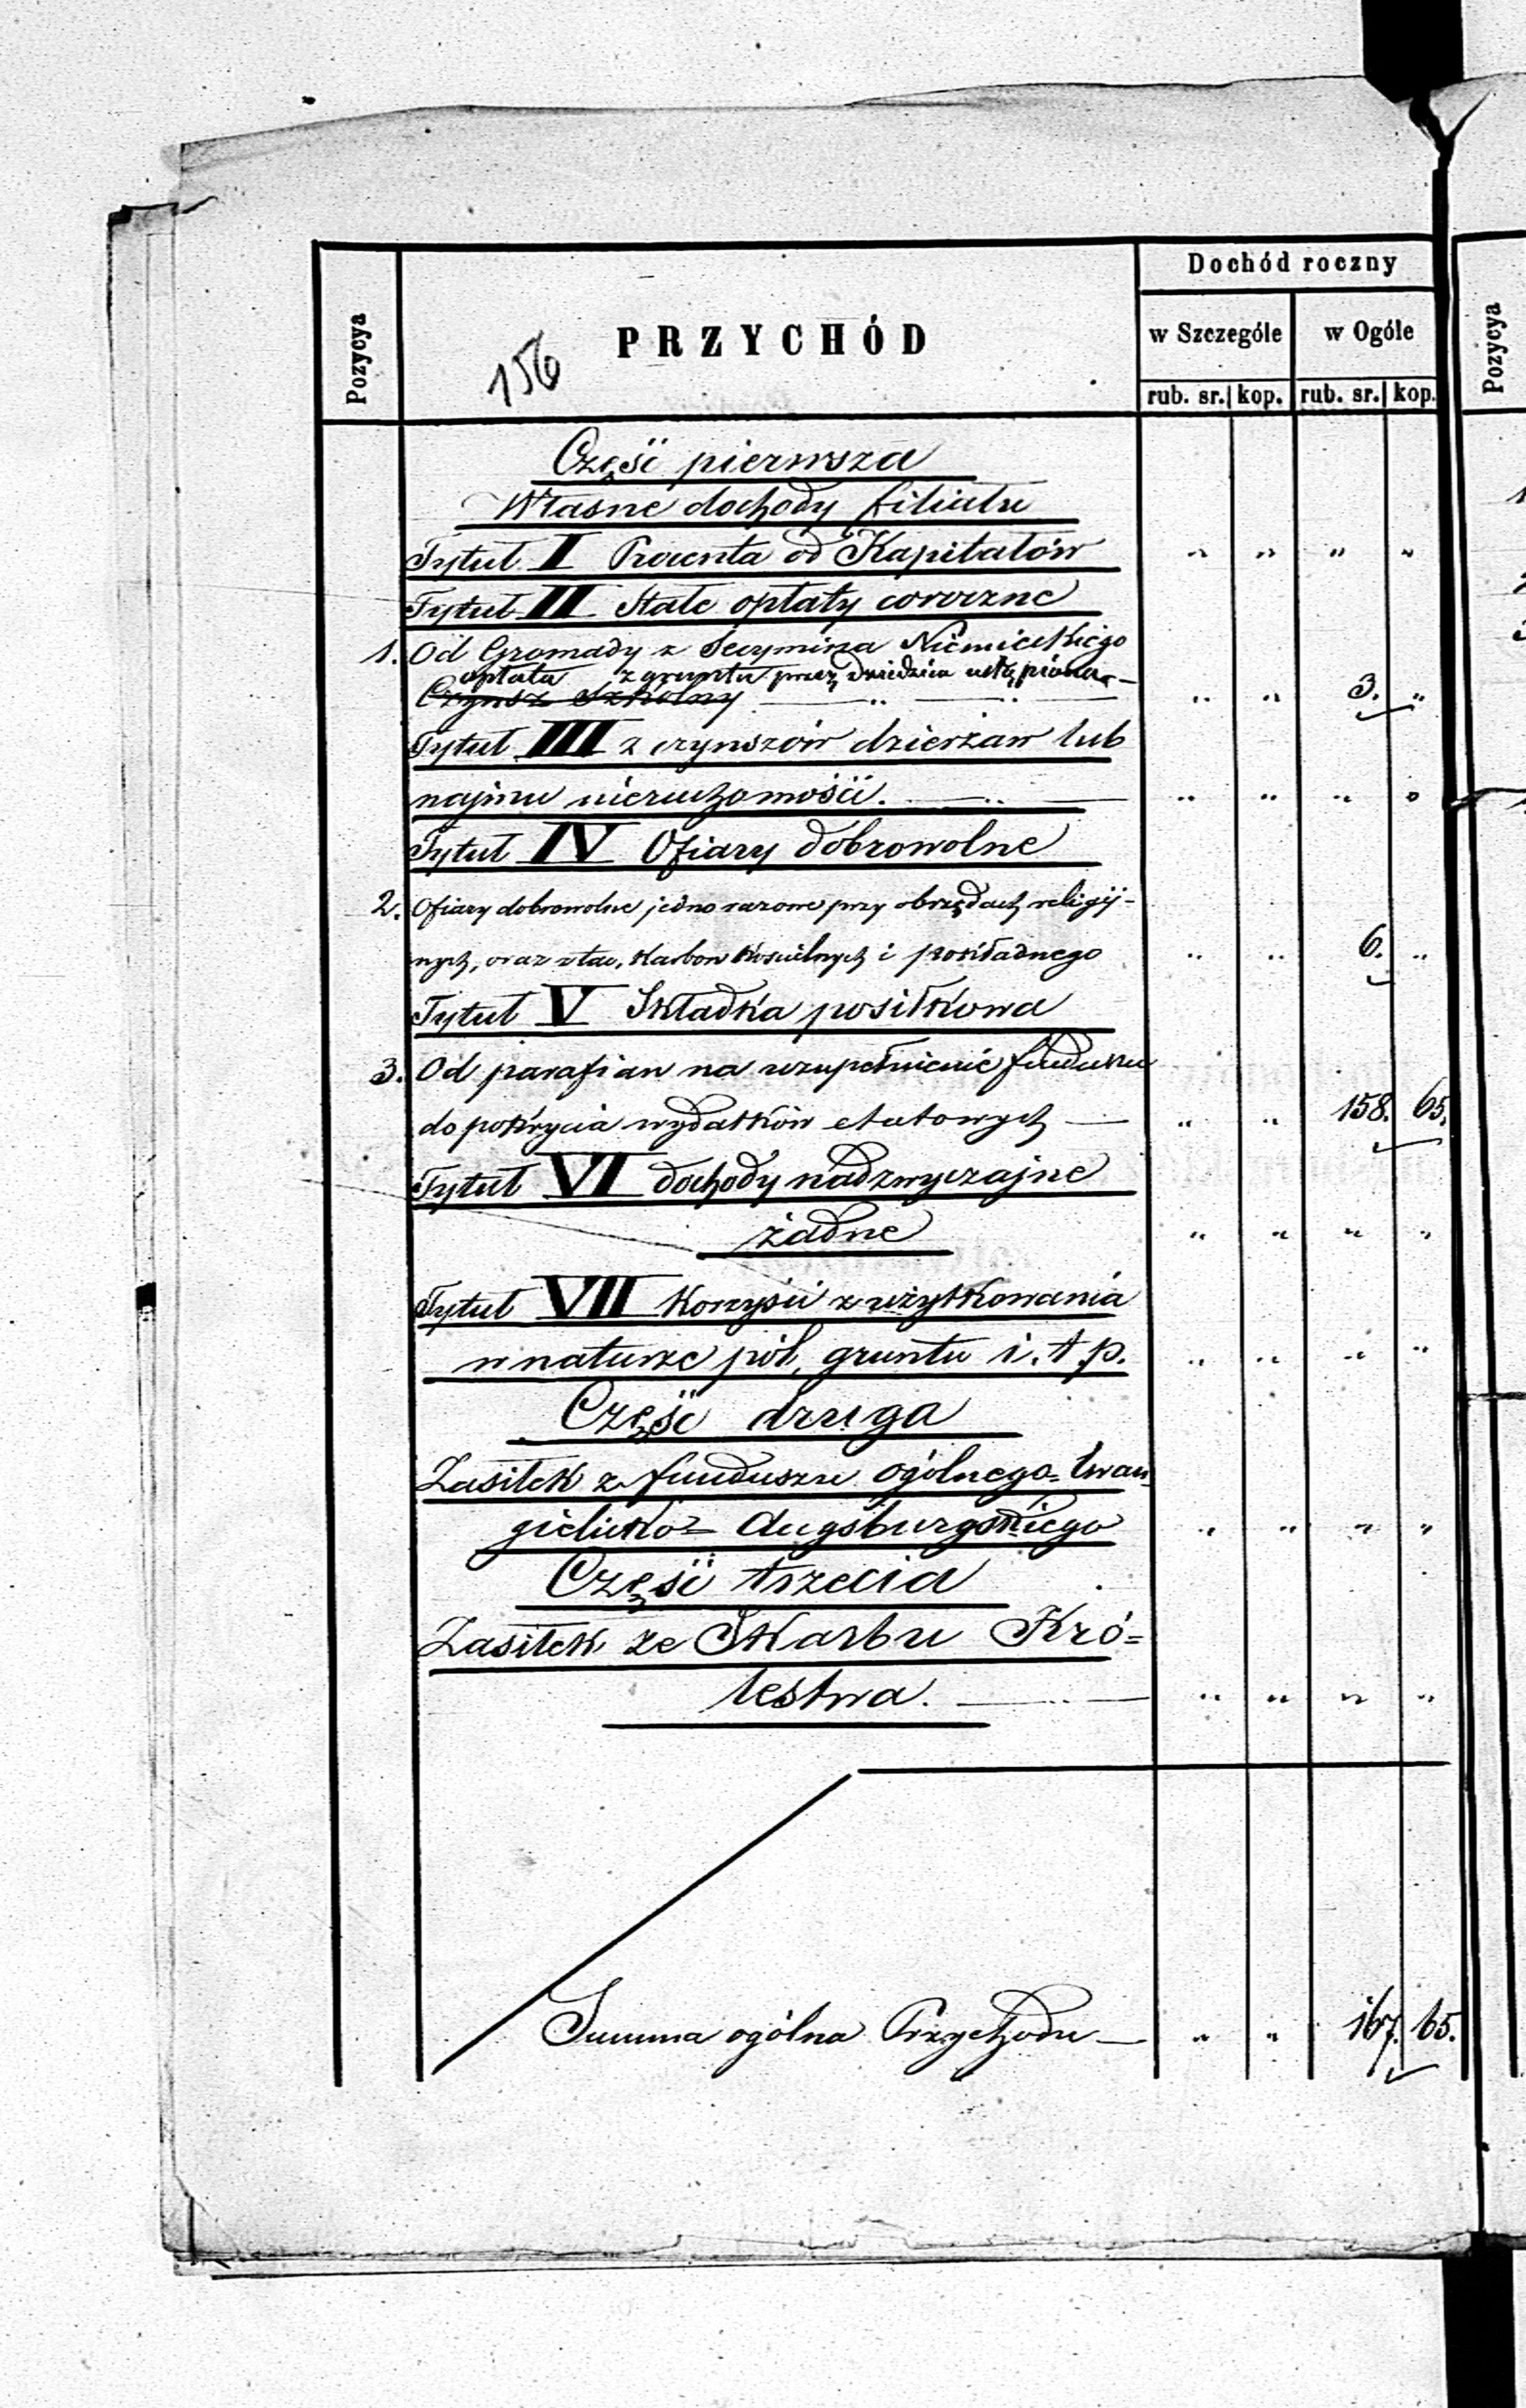 Pozycya
PRZYCHÓD
156
Dochód roczny
w Szczególe w Ogóle
rub. sr. kop. rub. sr. kop.
Pozycya
Część pierwsza
Własne dochody filiału
Tytuł I Procenta od Kapitałów " " " "
Tytuł II Stałe opłaty coroczne
1. Od Gromady z Secymina Niemieckiego
opłata z gruntu przez dziedzica ustąpiona
Czynsz Szkolny " " 3. "
Tytuł III z czynszów dzierżaw lub
najmu nieruchomości. " " " "
Tytuł IV Ofiary dobrowolne
2. Ofiary dobrowolne jedno razowe przy obrzędach religij-
nych, oraz z tac, Karbon Kościelnych i pokładnego " " 6. "
Tytuł V Składka posiłkowa
3. Od parafian na uzupełnienie funduszu
do pokrycia wydatków etatowych " " 158. 65.
Tytuł VI dochody nadzwyczajne
żadne " " " "
Tytuł VII Korzyści z użytkowania
w naturze pól, gruntu i. t p. " " " "
Część druga
Zasiłek z funduszu ogólnego Ewan
gielicko= Augsburgskiego " " " "
Część trzecia
Zasiłek ze Skarbu Kró=
lestwa. " " " "
Summa ogólna Przychodu " " 167. 65.